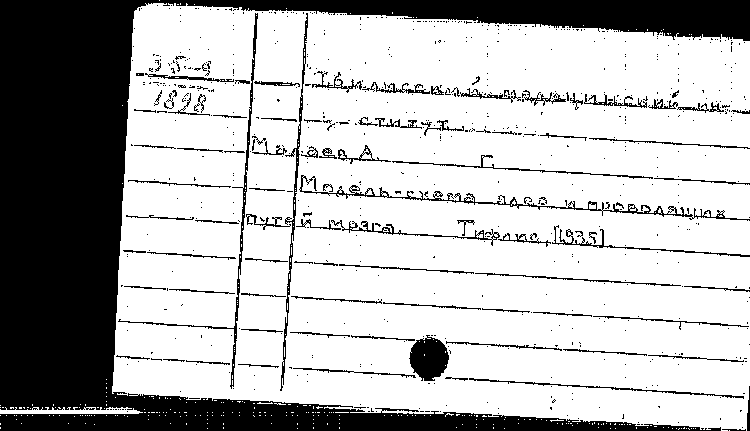 35-9
1898
Тбилисский медицинский ин-
ститут.
Малаев, А. Г.
Модель-схема ядер и проводящих
путей мозга. Тифлис, [1935].